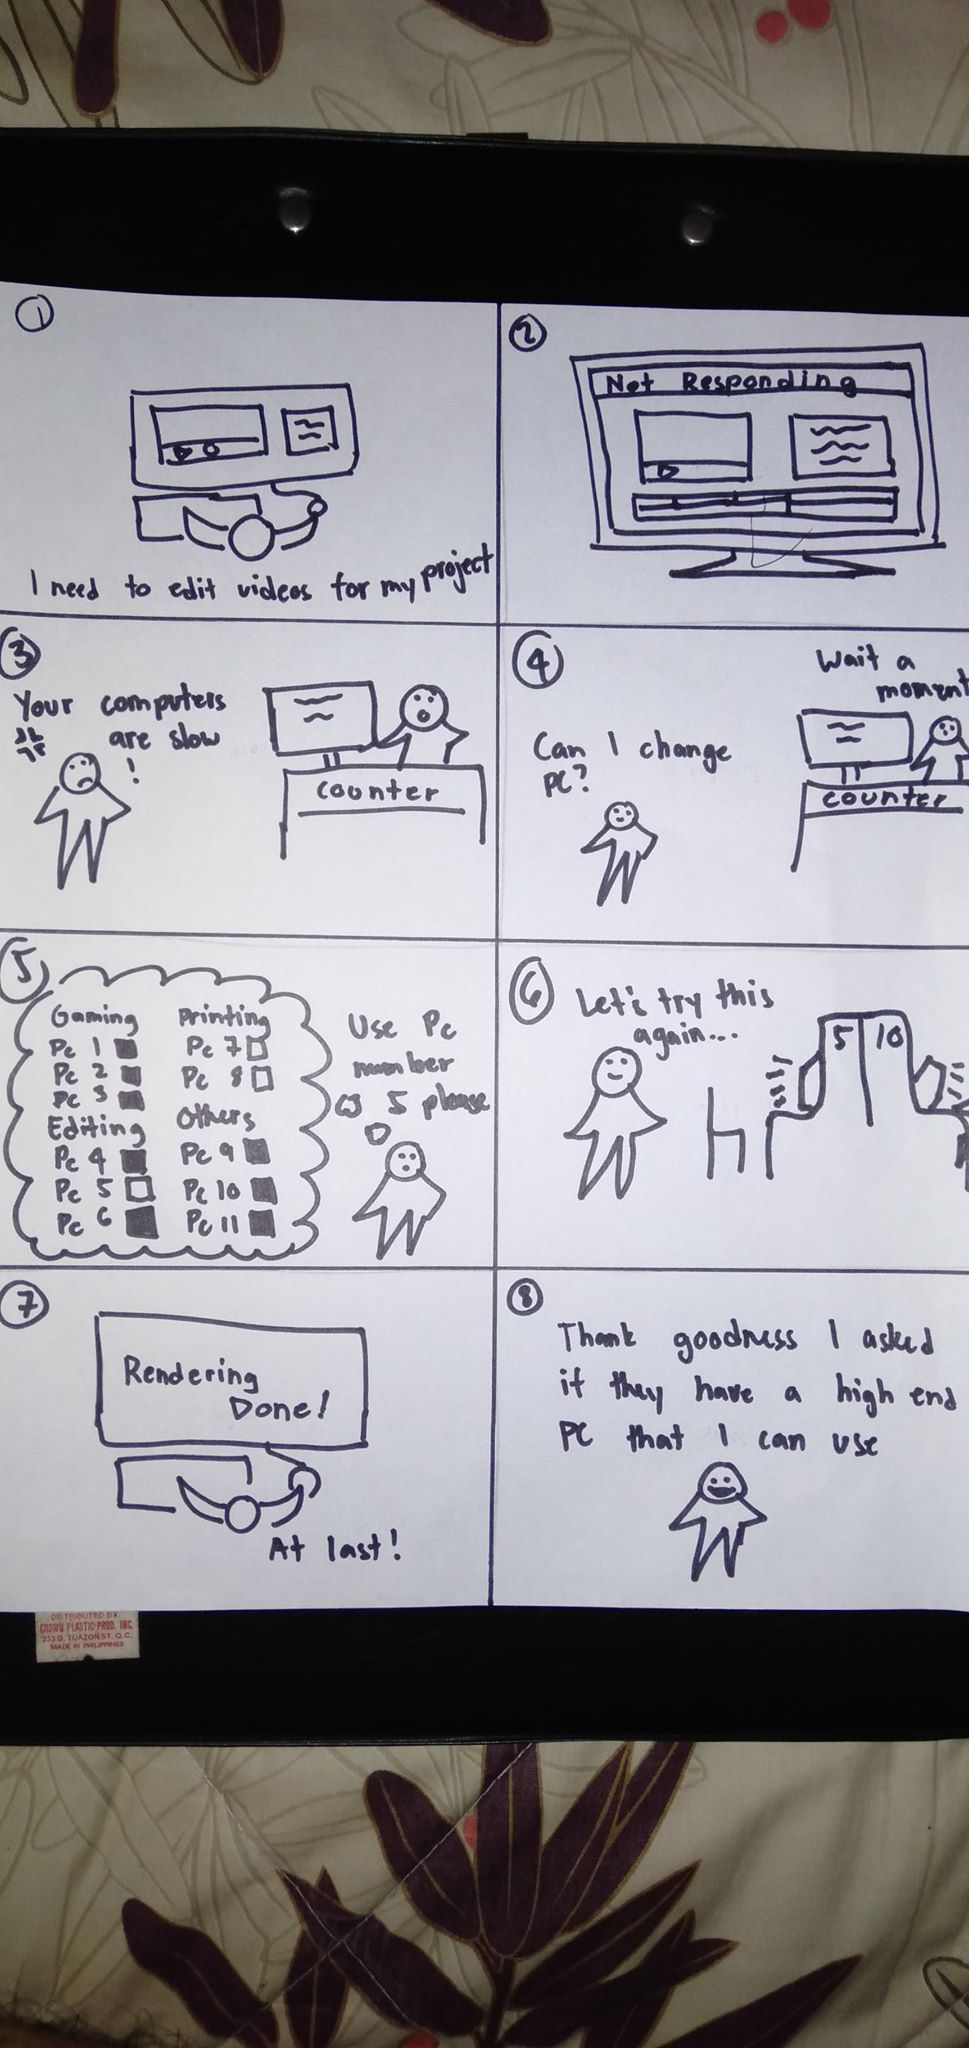 1
I need to edit videos for my project
2
Not Responding
3
Your computers
are slow
!
counter
4
Wait a
moment
Can I change
PC?
counter
5
Gaming
Pc 1
Pc 2
Pc 3
Editing
Pc 4
Pc 5
Pc 6
Printing
Pc 7
Pc 8
Others
Pc 9
Pc 10
Pc 11
Use Pc
number
5 please
6
Let's try this
again...
5 10
7
Rendering
Done!
At last!
8
Thank goodness I asked
if they have a high end
PC that I can use
DISTRIBUTED BY
CROWN PLASTIC PROD. INC.
233 D. TUAZON ST. Q.C.
MADE IN PHILIPPINES